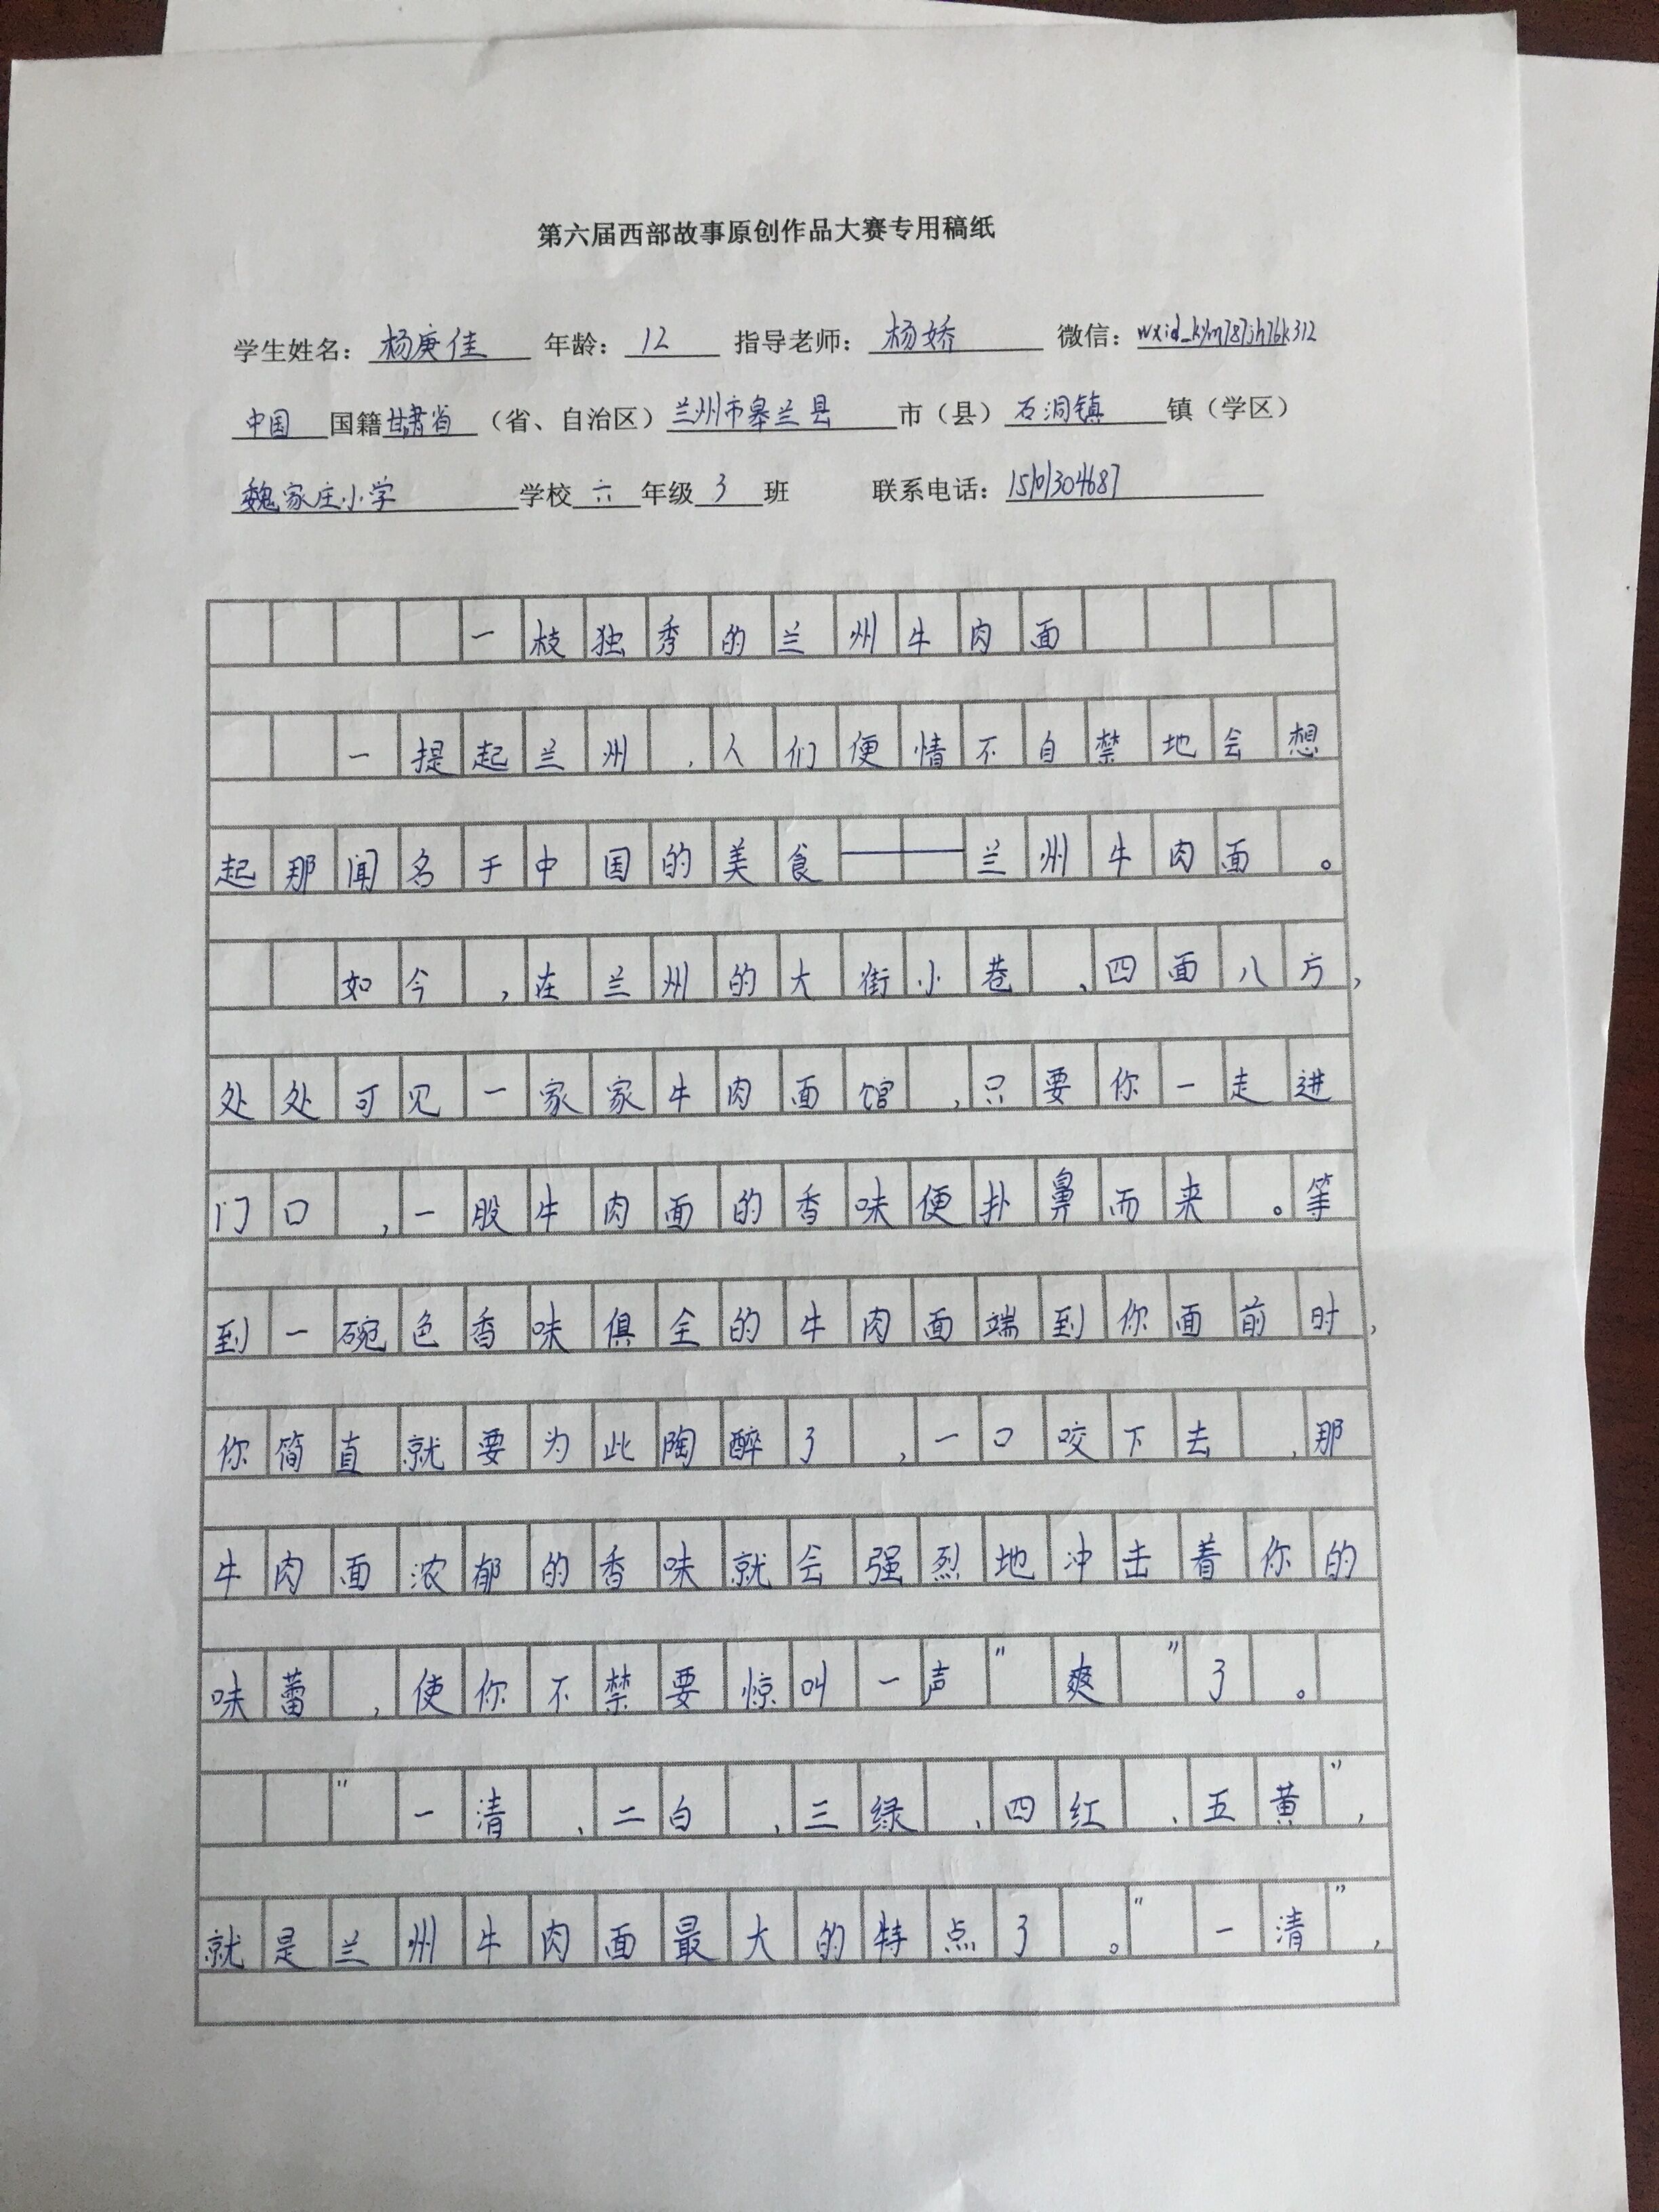 第六届西部故事原创作品大赛专用稿纸
学生姓名：杨庚佳 年龄：12 指导老师：杨娇 微信：wxid_kym787jh76k312
中国 国籍 甘肃省（省、自治区）兰州市皋兰县 市（县）石洞镇 镇（学区）
魏家庄小学 学校 六 年级 3 班 联系电话：15101304687
一枝独秀的兰州牛肉面
一提起兰州，人们便情不自禁地会想
起那闻名于中国的美食——兰州牛肉面。
如今，在兰州的大街小巷、四面八方，
处处可见一家家牛肉面馆，只要你一走进
门口，一股牛肉面的香味便扑鼻而来。等
到一碗色香味俱全的牛肉面端到你面前时，
你简直就要为此陶醉了，一口咬下去，那
牛肉面浓郁的香味就会强烈地冲击着你的
味蕾，使你不禁要惊叫一声“爽”了。
“一清、二白、三绿、四红、五黄”，
就是兰州牛肉面最大的特点了。“一清”，